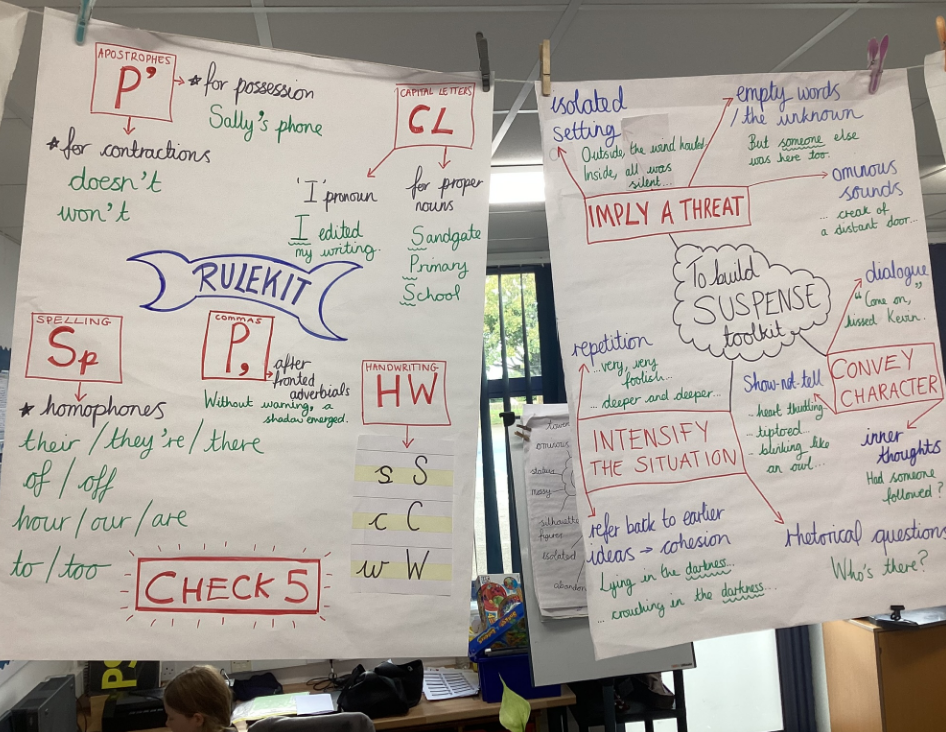 APOSTROPHES
P'
* for possession
Sally's phone
* for contractions
doesn't
won't
CAPITAL LETTERS
CL
'I' pronoun
I edited
my writing.
for proper
nouns
Sandgate
Primary
School
RULEKIT
SPELLING
Sp
* homophones
their / they're / there
of / off
hour / our / are
to / too
COMMAS
P,
after
fronted
adverbials
Without warning, a
shadow emerged.
HANDWRITING
HW
s S
c C
w W
CHECK 5
To build
SUSPENSE
toolkit
IMPLY A THREAT
isolated
setting
Outside, the wind howled.
Inside, all was
silent...
empty words
/ the unknown
But someone else
was here too.
ominous
sounds
... creak of
a distant door...
CONVEY
CHARACTER
dialogue
"Come on,"
hissed Kevin.
Show-not-tell
- heart thudding
- tiptoed...
- blinking like
an owl...
inner
thoughts
Had someone
followed?
INTENSIFY
THE SITUATION
repetition
...very, very
foolish...
... deeper and deeper...
refer back to earlier
ideas → cohesion
Lying in the darkness...
... crouching in the darkness...
rhetorical questions
Who's there?
ominous
mossy
silhouette
figure
isolated